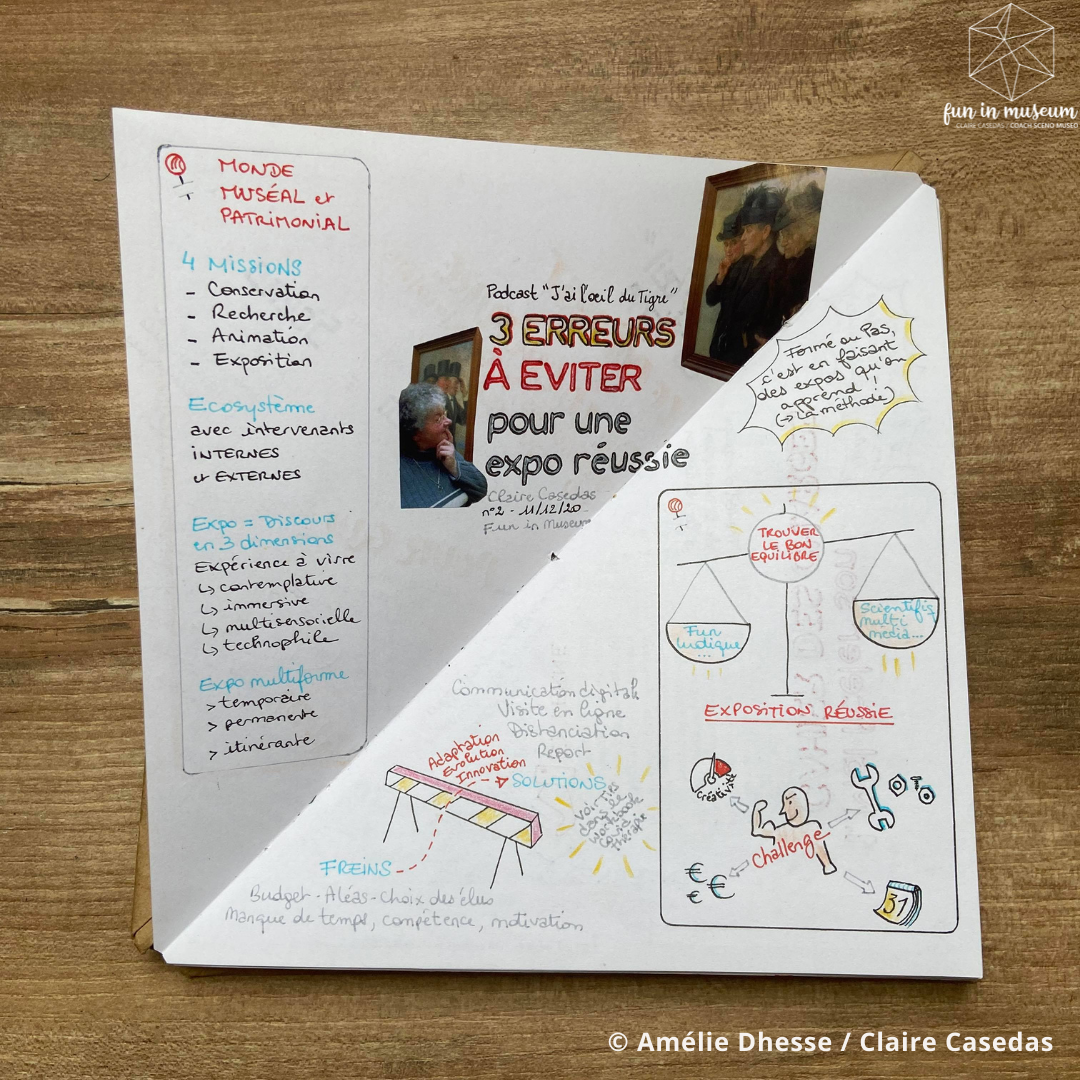 fun in museum
CLAIRE CASEDAS / COACH SCENO MUSEO
MONDE
MUSÉAL et
PATRIMONIAL
4 MISSIONS
- Conservation
- Recherche
- Animation
- Exposition
Ecosystème
avec intervenants
INTERNES
et EXTERNES
Expo = Discours
en 3 dimensions
Expérience à vivre
↳ contemplative
↳ immersive
↳ multisensorielle
↳ technophile
Expo multiforme
> temporaire
> permanente
> itinérante
Podcast "J'ai l'oeil du Tigre"
3 ERREURS
À EVITER
pour une
expo réussie
Claire Casedas
n°2 - 11/12/20
Fun in Museum
Formé ou Pas,
c'est en faisant
des expos qu'on
apprend !
(→ La méthode)
TROUVER
LE BON
EQUILIBRE
Fun
ludique
...
Scientifiq
multi
media...
EXPOSITION RÉUSSIE
Créativité
Challenge
€ € €
31
Communication digitale
Visite en ligne
Distanciation
Report
Adaptation
Evolution
Innovation
SOLUTIONS
Voir TIPS
dans le
Workbook
covid
thérapie
FREINS
Budget - Aléas - choix des élus
Manque de temps, compétence, motivation
© Amélie Dhesse / Claire Casedas